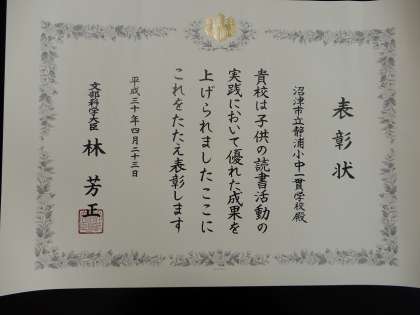 表彰状
沼津市立静浦小中一貫学校殿
貴校は子供の読書活動の
実践において優れた成果を
上げられましたここに
これをたたえ表彰します
平成三十年四月二十三日
文部科学大臣 林芳正